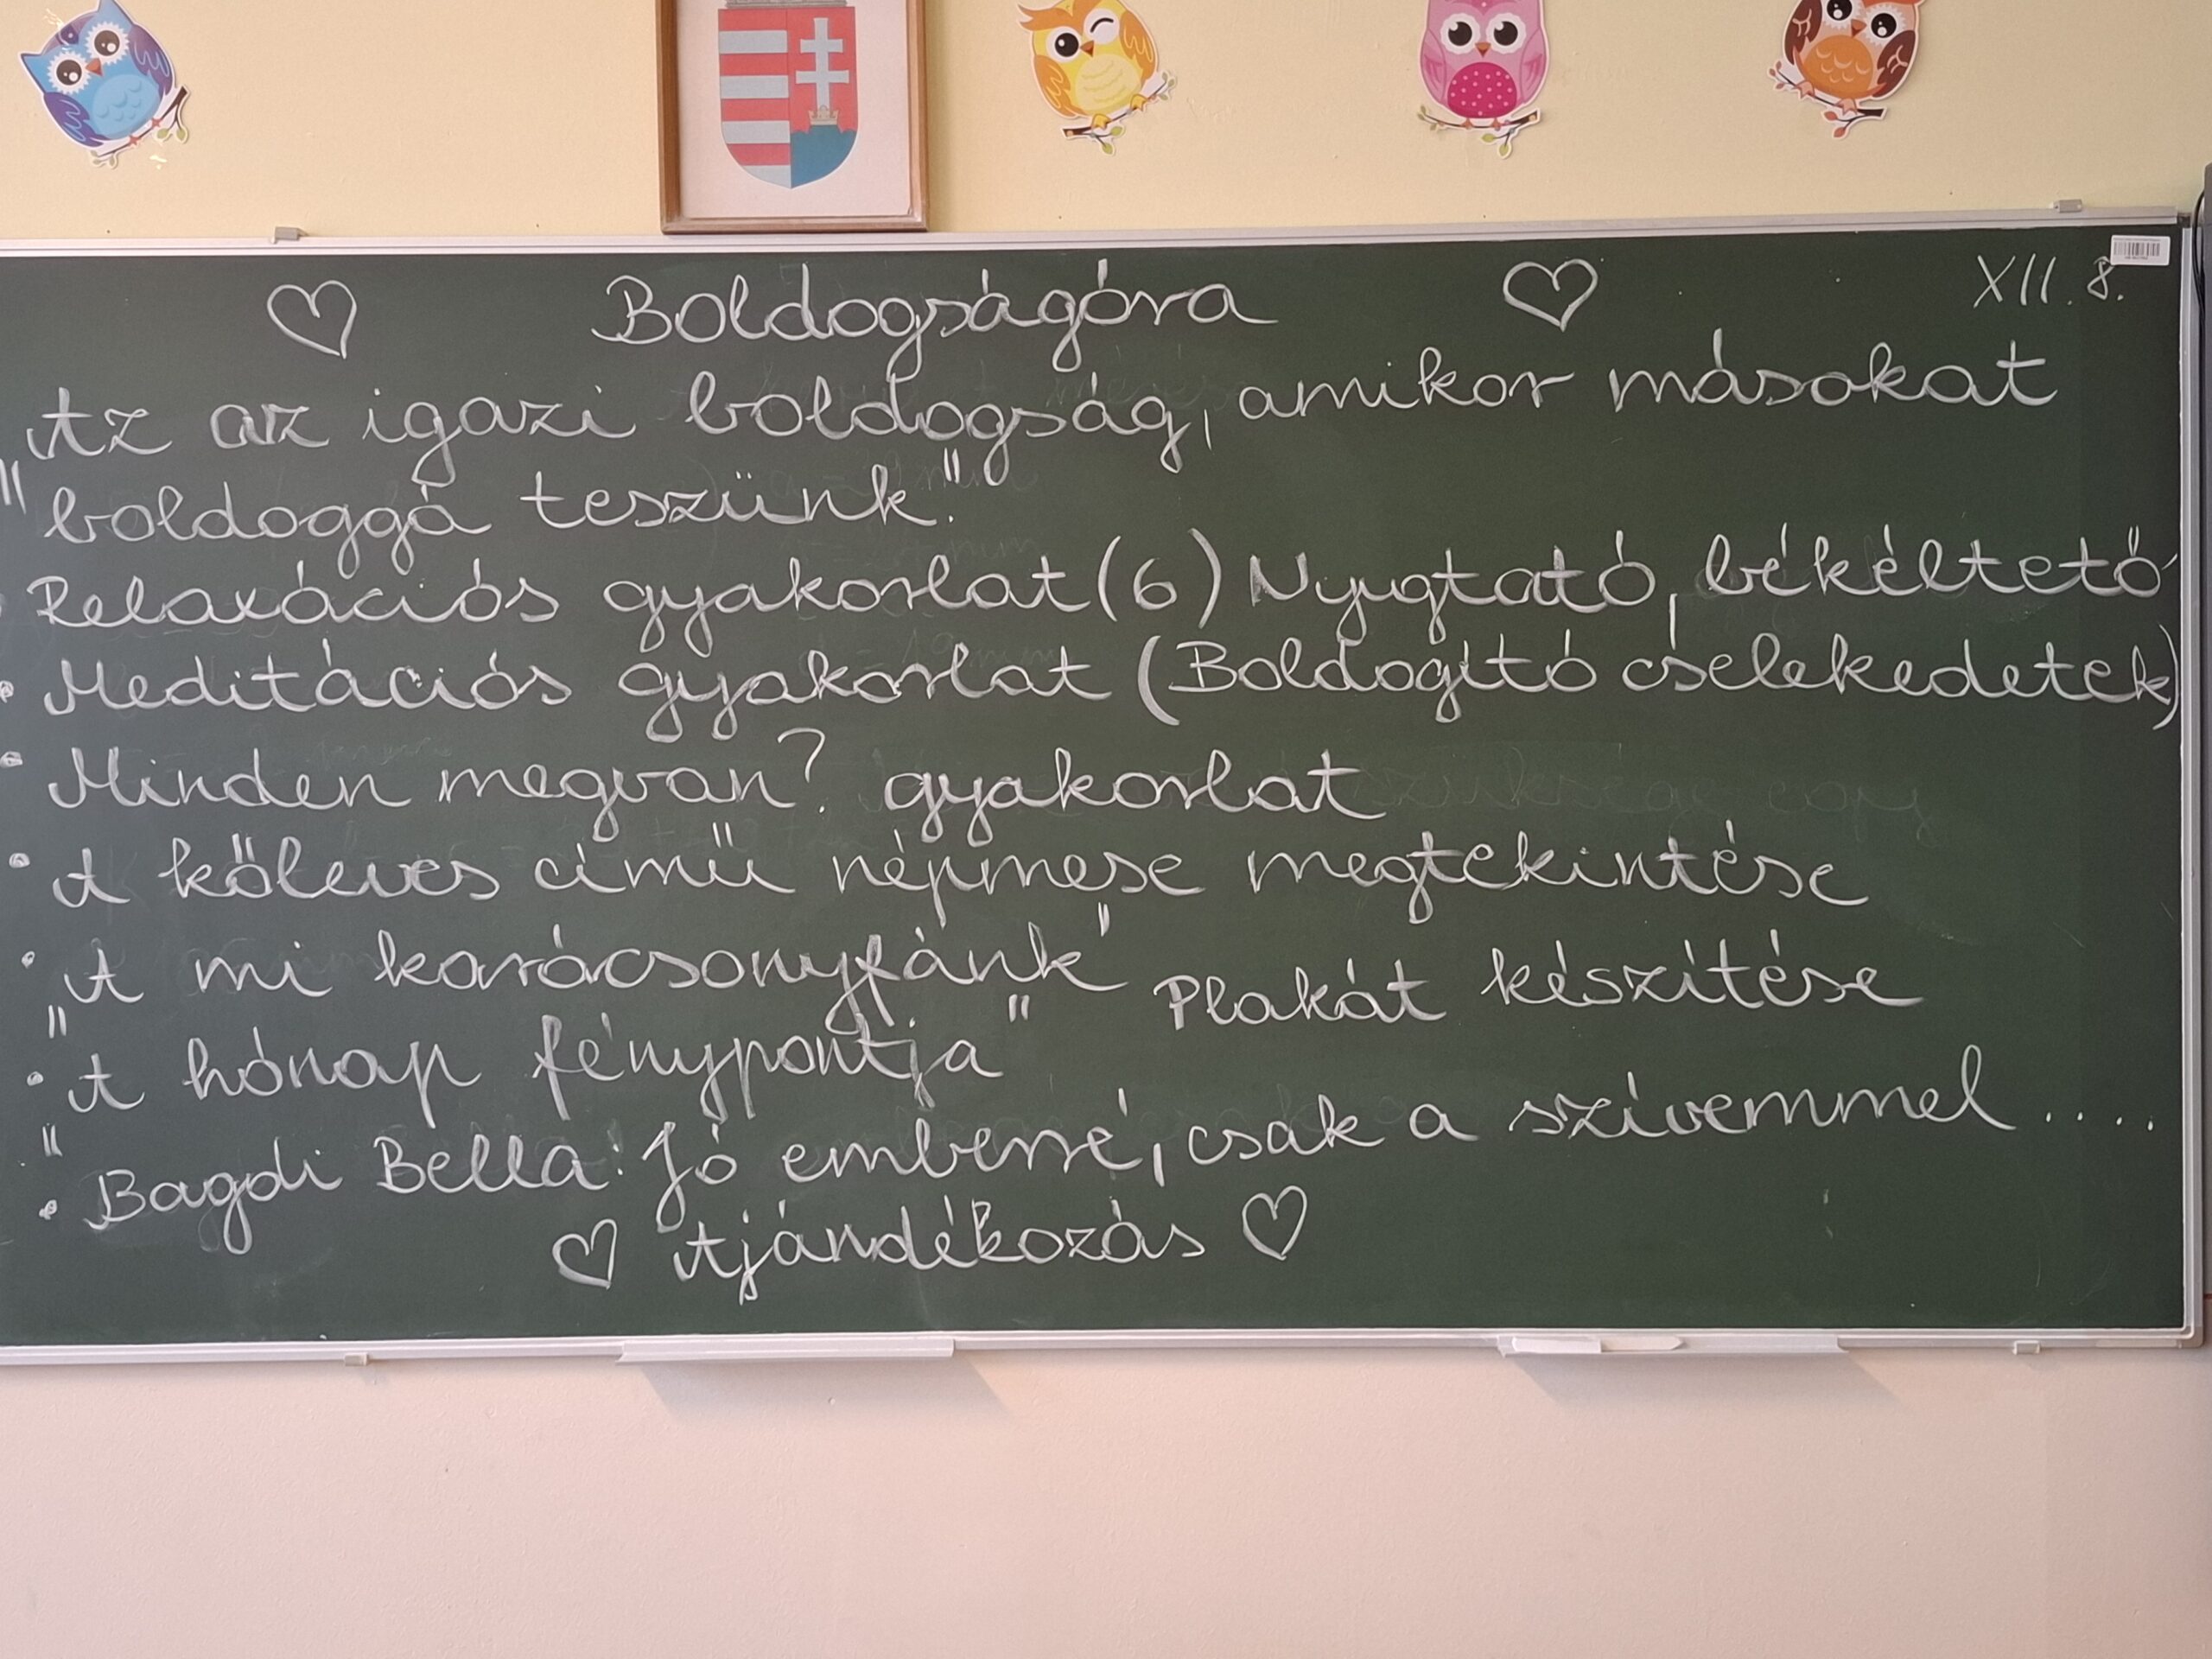 Boldogságóra XII. 8.
„Az az igazi boldogság, amikor másokat
boldoggá teszünk."
Relaxációs gyakorlat (6) Nyugtató, békéltető
• Meditációs gyakorlat (Boldogító cselekedetek)
• Minden megvan? gyakorlat
• A kőleves című népmese megtekintése
• „A mi karácsonyfánk" Plakát készítése
• „A hónap fénypontja"
• Bagdi Bella: Jó emberré, csak a szívemmel ....
Ajándékozás